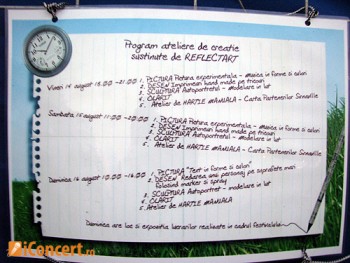 Program ateliere de creatie
sustinute de REFLECTART
Vineri 14 august 18.00 -21.00
1. PICTURA Pictura experimentala - muzica in forme si culori
2. DESEN Imprimeuri hand made pe tricouri
3. SCULPTURA Autoportretul - modelare in lut
4. OLARIT
5. Atelier de HARTIE MANUALA - Cartea Partenerilor
Sambata 15 august 11.00 -20.00
1. PICTURA Pictura experimentala - muzica in forme si culori
2. DESEN Imprimeuri hand made pe tricouri
3. SCULPTURA Autoportretul - modelare in lut
4. OLARIT
5. Atelier de HARTIE MANUALA - Cartea Partenerilor
Duminica 16 august 10.00 -16.00
1. PICTURA "Text in forme si culori"
2. DESEN Redarea unui personaj pe suprafete mari
folosind marker si spray
3. SCULPTURA Autoportret - modelare in lut
4. OLARIT
5. Atelier de HARTIE MANUALA
Duminica are loc si expozitia lucrarilor realizate in cadrul festivalului
iConcert.ro